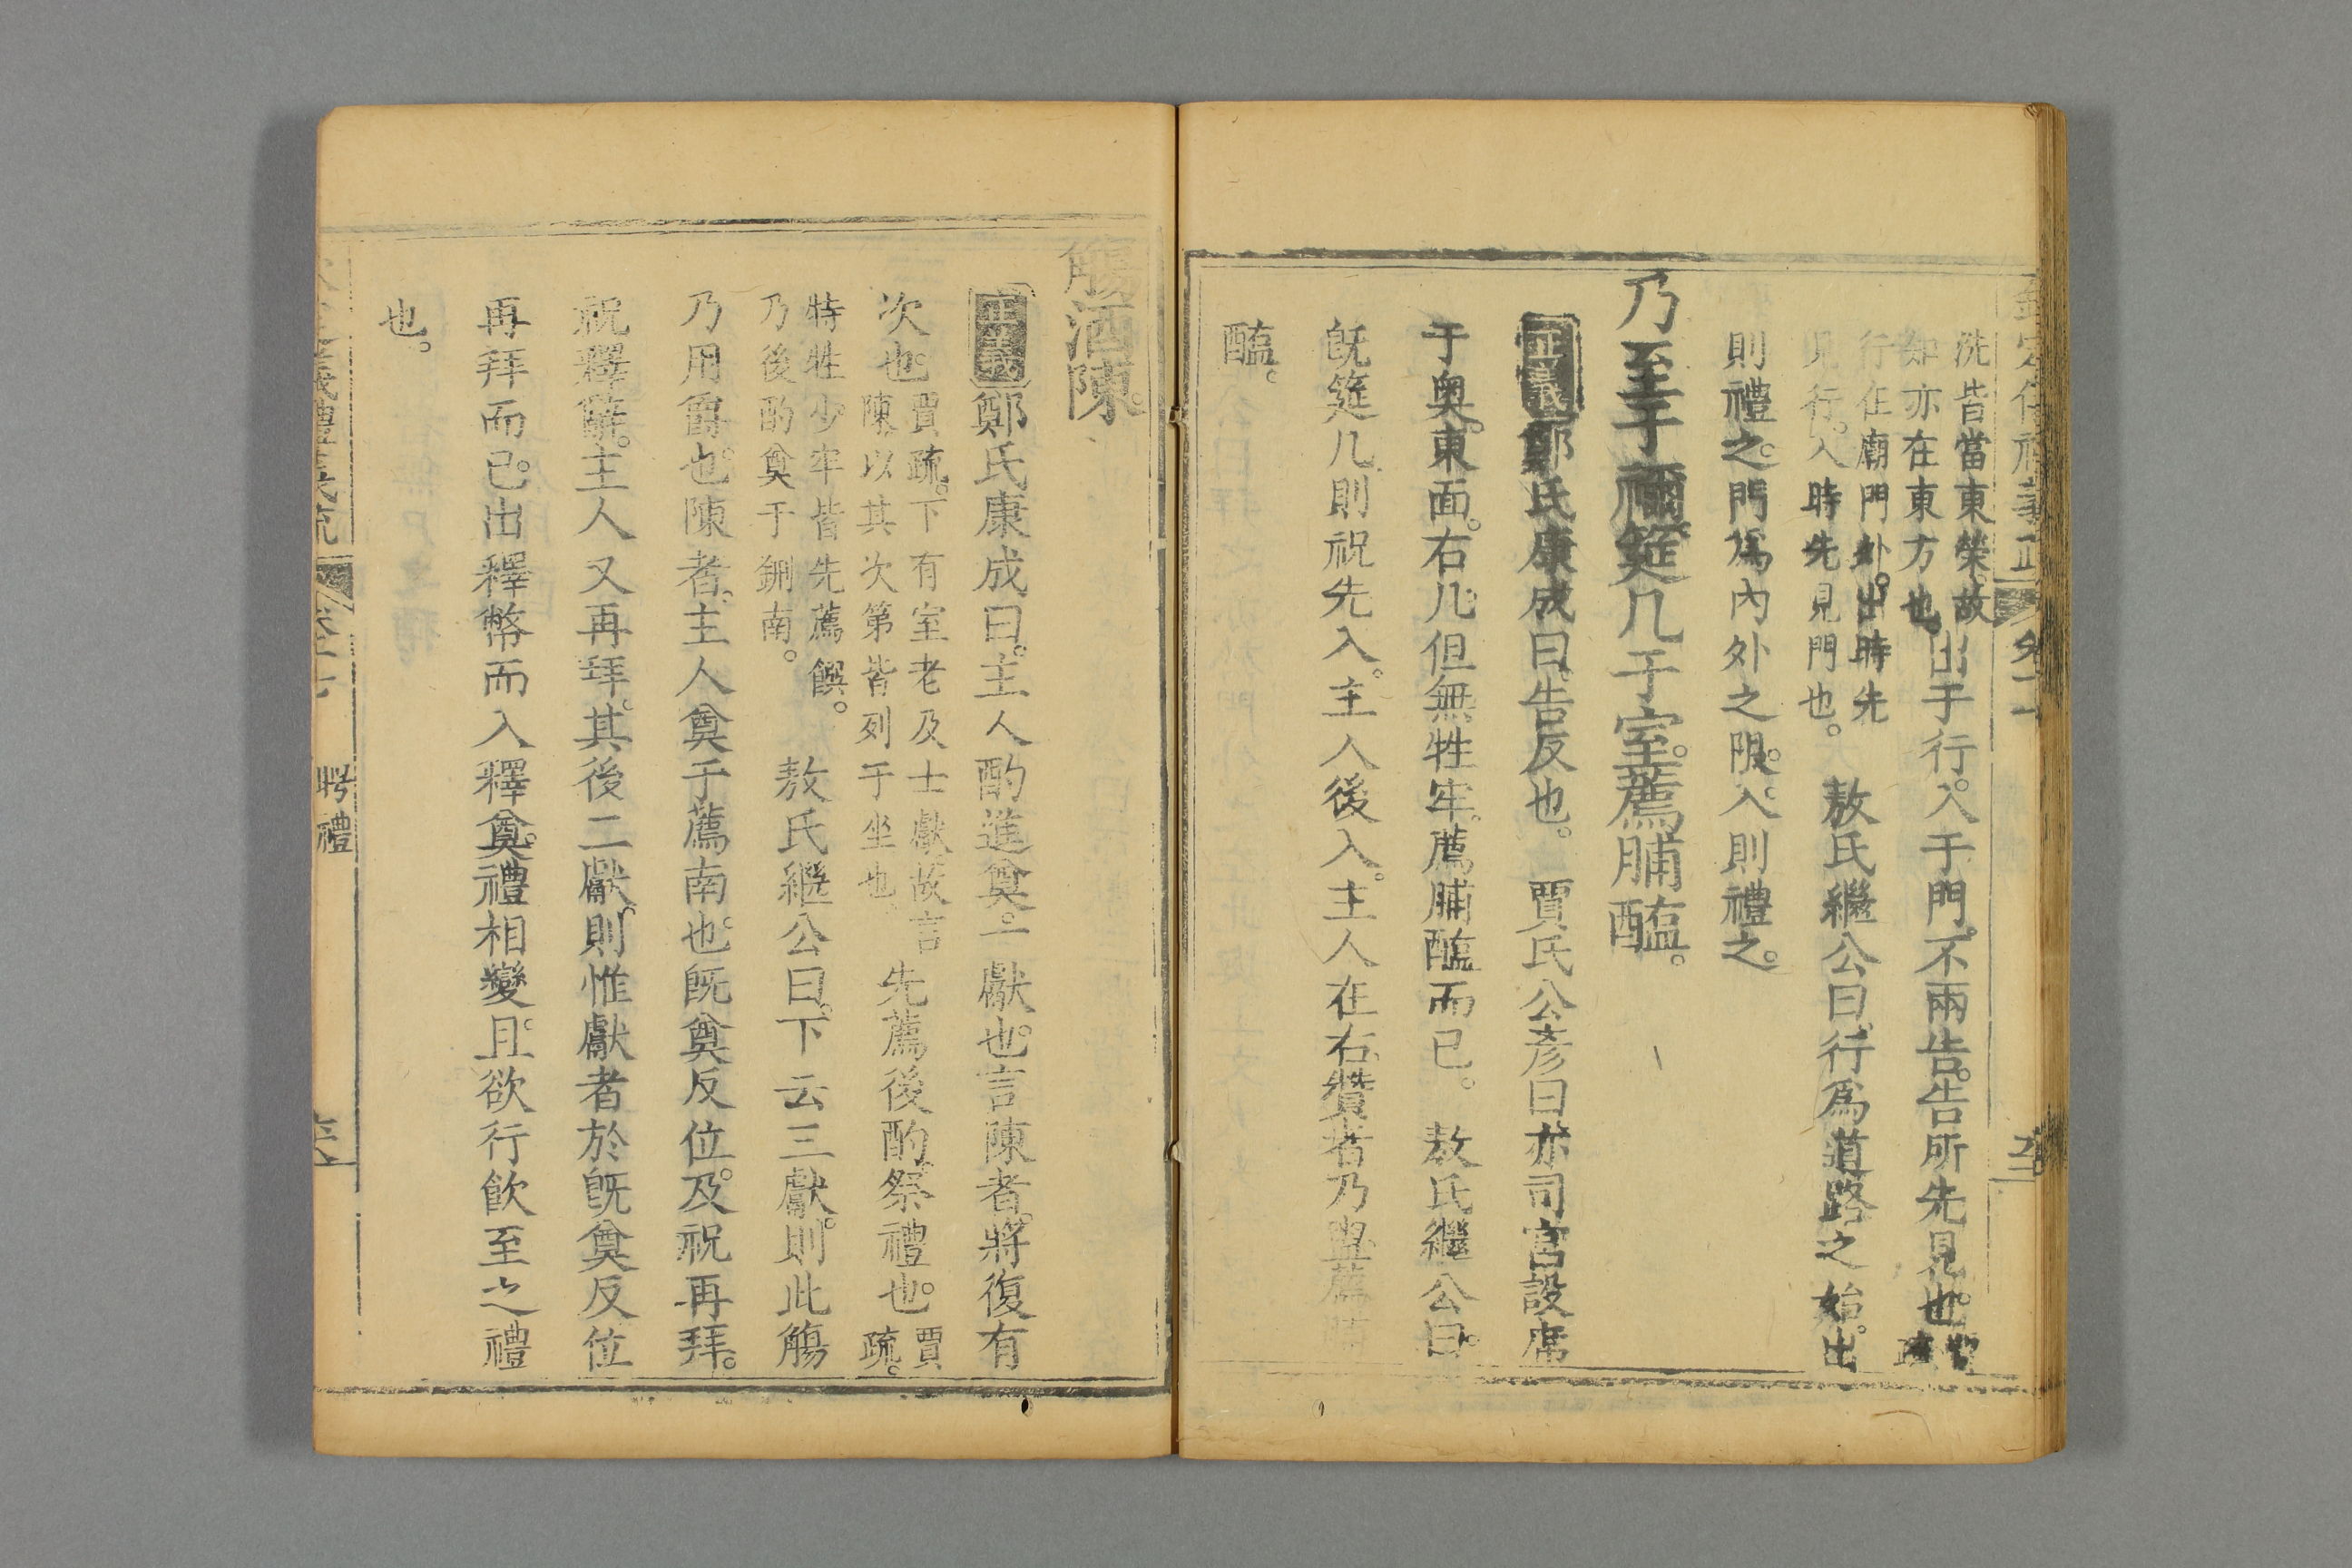 洗皆當東榮故
知亦在東方也
出于行。入于門。不兩告。告所先見也。賈
疏
行在廟門外。出時先
見行。入時先見門也。
敖氏繼公曰。行爲道路之始。出
則禮之。門爲內外之限。入則禮之。
乃至于禰。筵几于室。薦脯醢。
正義鄭氏康成曰。告反也。 賈氏公彥曰。亦司宮設席
于奥。東面。右几。但無牲牢。薦脯醢而已。 敖氏繼公曰。
旣筵几。則祝先入。主人後入。主人在右。贊者乃盥薦脯
醢。
觴酒陳。
正義鄭氏康成曰。主人酌進奠。一獻也。言陳者。將復有
次也。
賈疏。下有室老及士獻。故言
陳。以其次第皆列于坐也。
先薦後酌。祭禮也。
賈
疏。
特牲少牢皆先薦饌。
乃後酌奠于鉶南。
敖氏繼公曰。下云三獻。則此觴
乃用爵也。陳者。主人奠于薦南也。旣奠反位。及祝再拜。
祝釋辭。主人又再拜。其後二獻。則惟獻者於旣奠反位
再拜而已。出釋幣而入釋奠。禮相變。且欲行飮至之禮
也。
聘禮